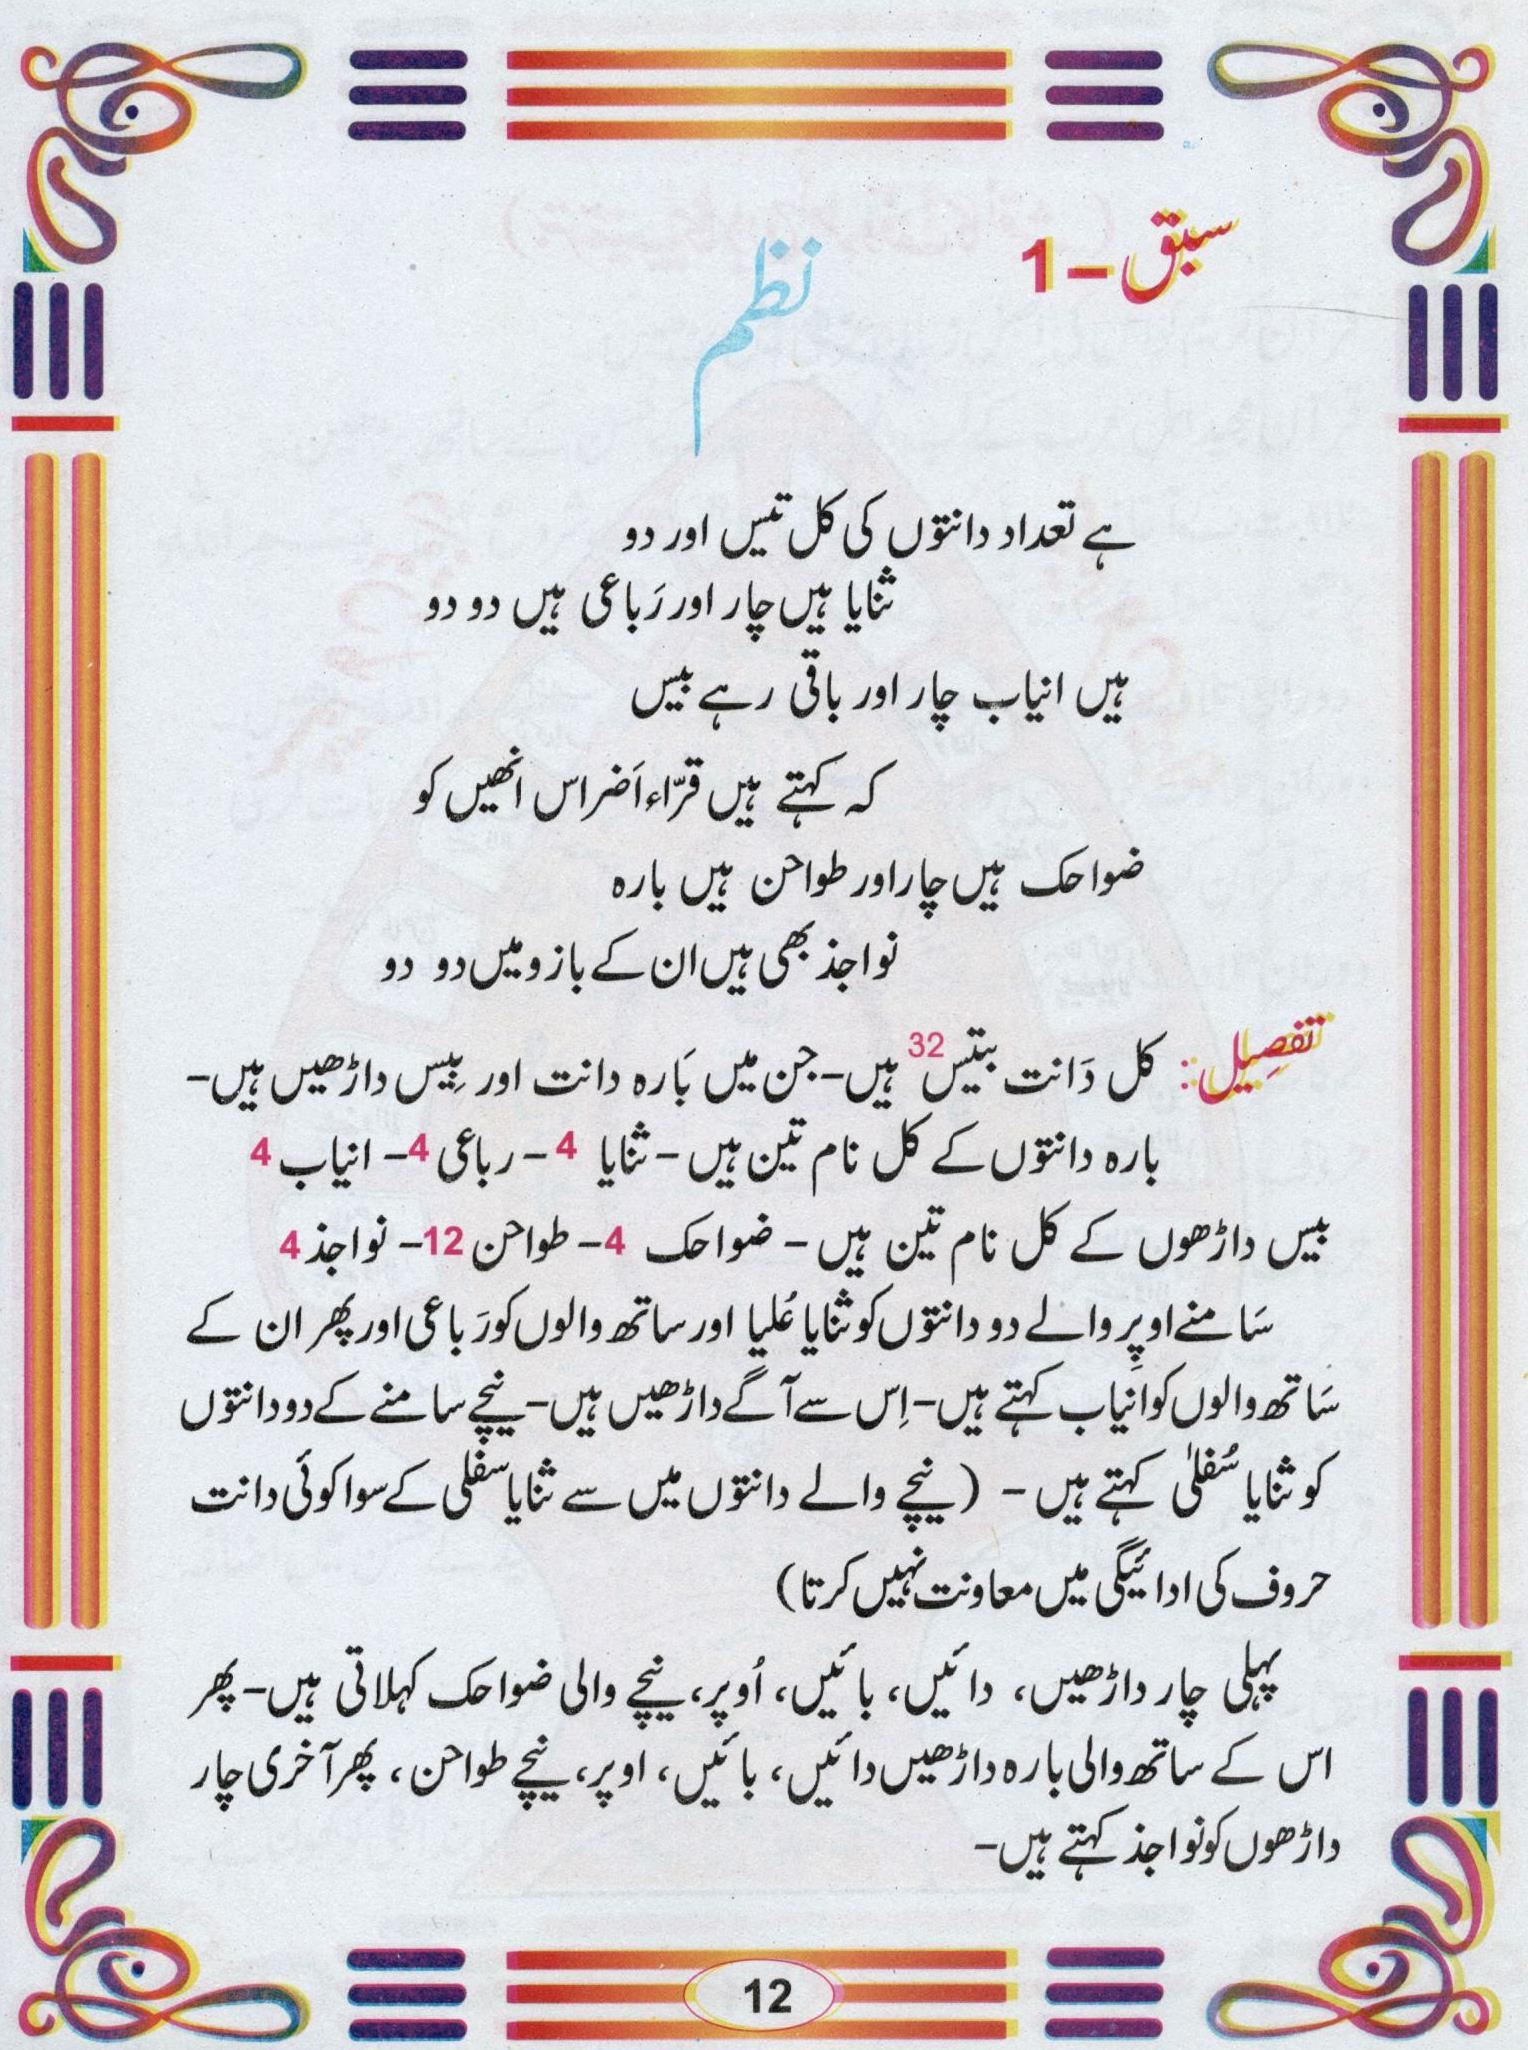 سبق - 1
نظم
ہے تعداد دانتوں کی کل تیس اور دو
ثنایا ہیں چار اور رَباعی ہیں دو دو
ہیں انیاب چار اور باقی رہے بیس
کہ کہتے ہیں قرّاء اَضراس انھیں کو
ضواحک ہیں چار اور طواحن ہیں بارہ
نواجذ بھی ہیں ان کے بازو میں دو دو
تفصِیل: کل دَانت بتیس 32 ہیں - جن میں بَارہ دانت اور بِیس داڑھیں ہیں -
بارہ دانتوں کے کل نام تین ہیں - ثنایا 4 - رباعی 4 - انیاب 4
بیس داڑھوں کے کل نام تین ہیں - ضواحک 4 - طواحن 12 - نواجذ 4
سَامنے اوپر والے دو دانتوں کو ثنایا عُلیا اور ساتھ والوں کو رَباعی اور پھر ان کے
سَاتھ والوں کو اَنیاب کہتے ہیں - اِس سے آگے داڑھیں ہیں - نیچے سامنے کے دو دانتوں
کو ثنایا سُفلیٰ کہتے ہیں - (نیچے والے دانتوں میں سے ثنایا سفلی کے سوا کوئی دانت
حروف کی ادائیگی میں معاونت نہیں کرتا)
پہلی چار داڑھیں، دائیں، بائیں، اُوپر، نیچے والی ضواحک کہلاتی ہیں - پھر
اس کے ساتھ والی بارہ داڑھیں دائیں، بائیں، اوپر، نیچے طواحن، پھر آخری چار
داڑھوں کو نواجذ کہتے ہیں -
12